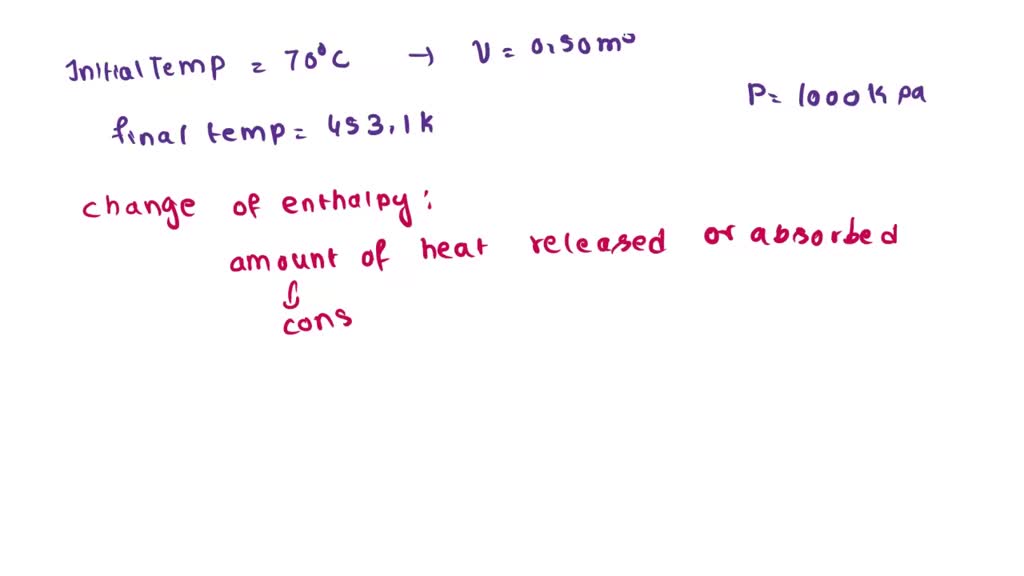 Initial Temp = 70°C → V = 0.50m³
P = 1000K pa
final temp = 453.1k
change of enthalpy:
amount of heat released or absorbed
cons